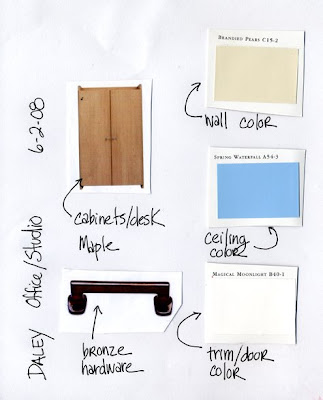 DALEY Office/Studio 6-2-08
BRANDIED PEARS C15-2
wall color
SPRING WATERFALL A54-3
cabinets/desk
Maple
ceiling
color
MAGICAL MOONLIGHT B40-1
bronze
hardware
trim/door
color